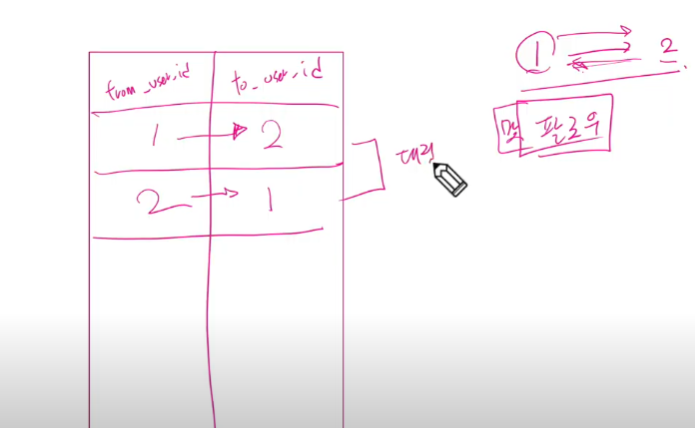 from_user_id to_user_id
1 → 2
2 → 1
1 2
맞 팔로우